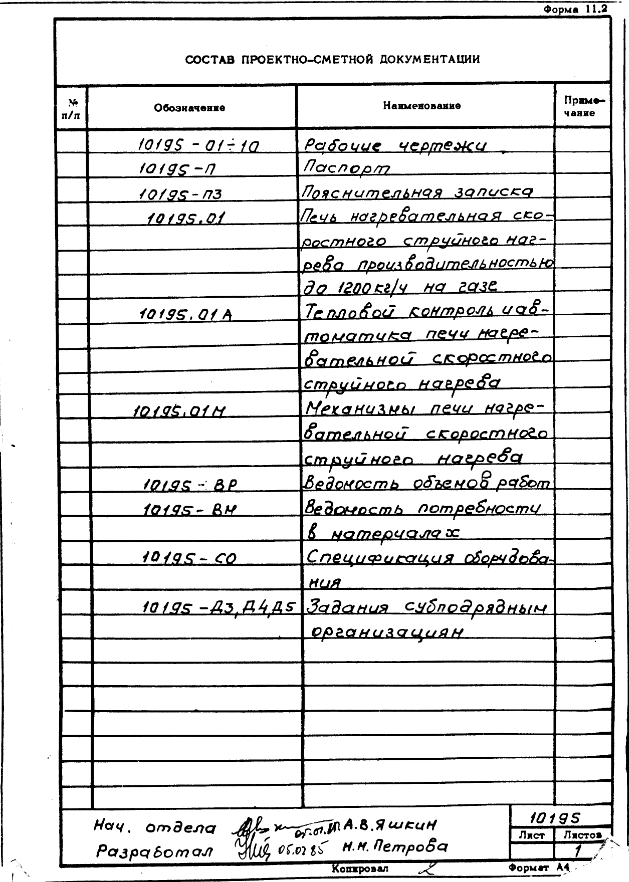 Форма 11.2
СОСТАВ ПРОЕКТНО-СМЕТНОЙ ДОКУМЕНТАЦИИ
№ п/п Обозначение Наименование Приме-
чание
10195-01÷10 Рабочие чертежи
10195-П Паспорт
10195-ПЗ Пояснительная записка
10195.01 Печь нагревательная ско-
ростного струйного наг-
рева производительностью
до 1200 кг/ч на газе
10195.01А Тепловой контроль и ав-
томатика печи нагре-
вательной скоростного
струйного нагрева
10195.01М Механизмы печи нагре-
вательной скоростного
струйного нагрева
10195-ВР Ведомость объемов работ
10195-ВМ Ведомость потребности
в материалах
10195-СО Спецификация оборудова-
ния
10195-Д3,Д4,Д5 Задания субподрядным
организациям
10195
Нач. отдела А.В.Яшкин
Лист Листов
Разработал 05.02.85 Н.Н.Петрова 1
Копировал Формат А4